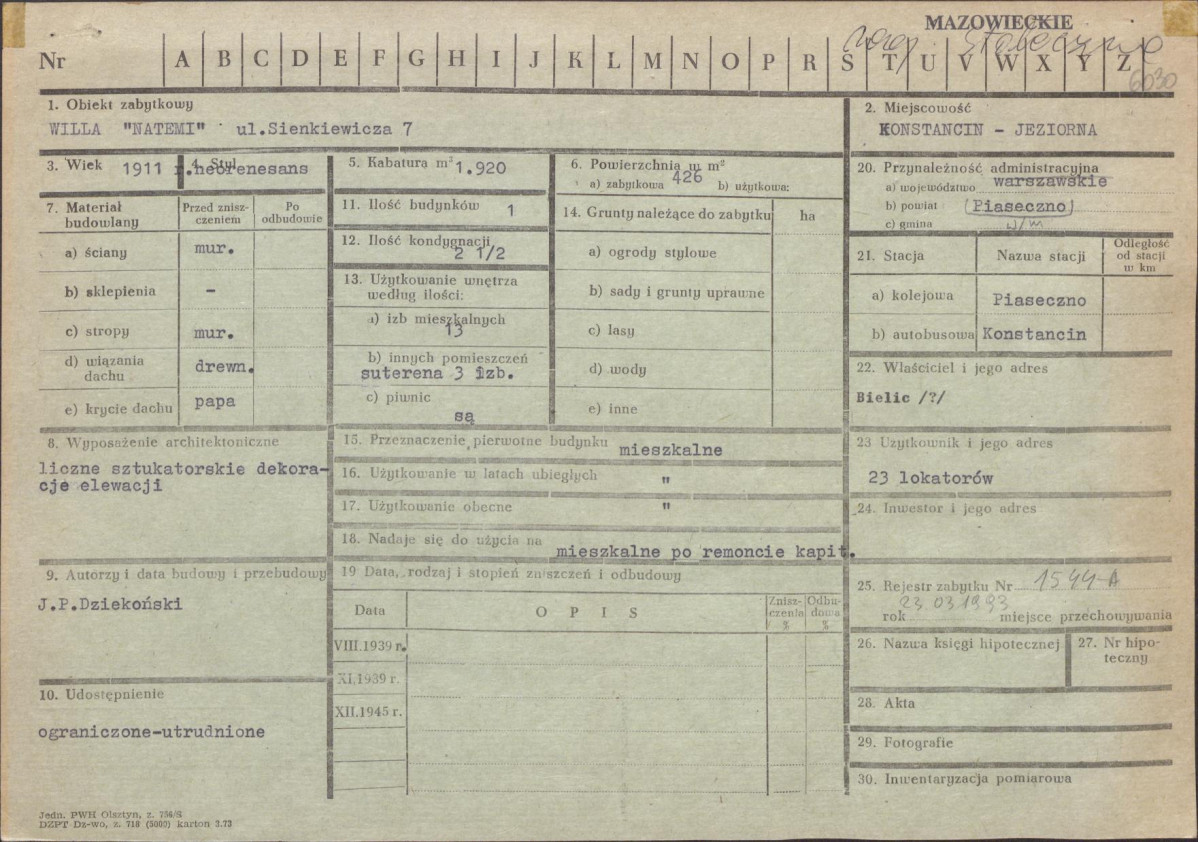 MAZOWIECKIE
Nr A B C D E F G H I J K L M N O P R S T U V W X Y Z
6030
1. Obiekt zabytkowy
WILLA "NATEMI" ul.Sienkiewicza 7
2. Miejscowość
KONSTANCIN - JEZIORNA
3. Wiek 1911 r.
4. Styl
neorenesans
5. Kabatura m³ 1.920
6. Powierzchnia w m²
a) zabytkowa 426 b) użytkowa:
20. Przynależność administracyjna
a) województwo warszawskie
b) powiat (Piaseczno)
c) gmina w/m
7. Materiał budowlany
Przed znisz-
czeniem
Po
odbudowie
a) ściany mur.
b) sklepienia -
c) stropy mur.
d) wiązania
dachu drewn.
e) krycie dachu papa
11. Ilość budynków 1
12. Ilość kondygnacji
2 1/2
13. Użytkowanie wnętrza
według ilości:
a) izb mieszkalnych
13
b) innych pomieszczeń
suterena 3 izb.
c) piwnic
są
14. Grunty należące do zabytku ha
a) ogrody stylowe
b) sady i grunty uprawne
c) lasy
d) wody
e) inne
21. Stacja Nazwa stacji
Odległość
od stacji
w km
a) kolejowa Piaseczno
b) autobusowa Konstancin
22. Właściciel i jego adres
Bielic /?/
8. Wyposażenie architektoniczne
liczne sztukatorskie dekora-
cje elewacji
15. Przeznaczenie pierwotne budynku mieszkalne
16. Użytkowanie w latach ubiegłych "
17. Użytkowanie obecne "
18. Nadaje się do użycia na mieszkalne po remoncie kapit.
23 Użytkownik i jego adres
23 lokatorów
24. Inwestor i jego adres
9. Autorzy i data budowy i przebudowy
J.P.Dziekoński
19 Data, rodzaj i stopień zniszczeń i odbudowy
Data OPIS
Znisz-
czenia
%
Odbu-
dowa
%
VIII.1939 r.
XI.1939 r.
XII.1945 r.
25. Rejestr zabytku Nr 1544-A
23 03 1993
rok miejsce przechowywania
26. Nazwa księgi hipotecznej
27. Nr hipo-
teczny
10. Udostępnienie
ograniczone-utrudnione
28. Akta
29. Fotografie
30. Inwentaryzacja pomiarowa
Jedn. PWH Olsztyn, z. 756/S
DZPT Dz-wo, z. 718 (5000) karton 3.73